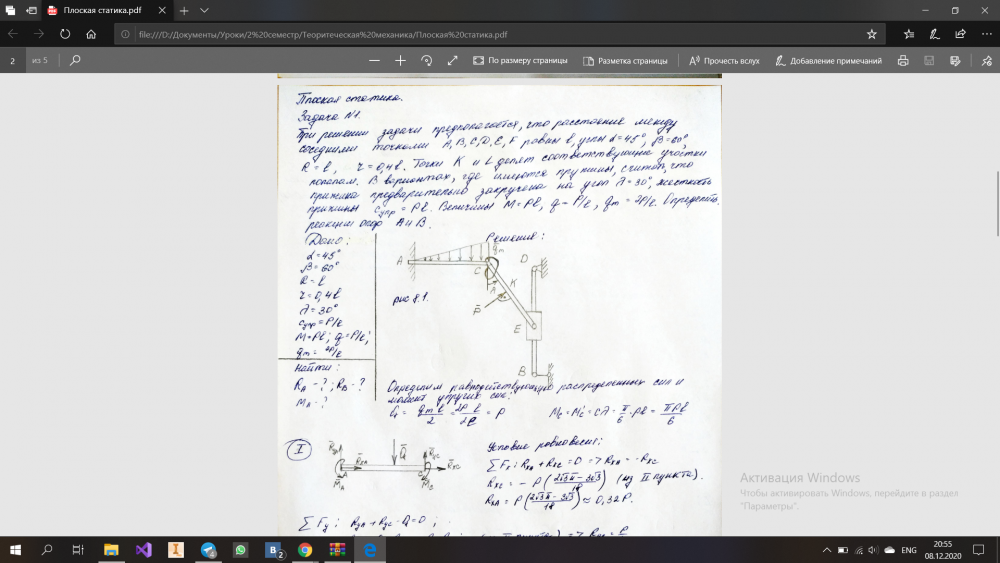 Плоская статика.pdf
file:///D:/Документы/Уроки/2%20семестр/Теоритеческая%20механика/Плоская%20статика.pdf
2 из 5
По размеру страницы
Разметка страницы
Прочесть вслух
Добавление примечаний
Плоская статика.
Задача №1.
При решении задачи предполагается, что расстояние между
соседними точками A, B, C, D, E, F равны l, углы α=45°, β=60°,
R=l, r=0,4l. Точки K и L делят соответствующие участки
пополам. В вариантах, где имеются пружины, считать, что
пружина предварительно закручена на угол λ=30°, жесткость
пружины Cупр=Pl. Величины M=Pl, q=P/l, qm=2P/l. Определить
реакции опор A и B.
Дано:
α=45°
β=60°
R=l
r=0,4l
λ=30°
Cупр=P/l
M=Pl; q=P/l;
qm=2P/l
Найти:
RA-?; RB-?
MA-?
Решение:
qm
A
D
C
K
λ
P
E
B
рис 8.1.
Определим равнодействующую распределенных сил и
момент упругих сил:
= qm l/2 = 2Pl/2l = P
Mc=Mc'=Cλ=π/6·Pl=πPl/6
I
RyA
RxA
A
MA
Q
RyC
RxC
C
Условие равновесия:
∑Fx: RxA+RxC=0 => RxA=-RxC
RxC=-P(2√3π-3√3/18) (из II пункта).
RxA=P(2√3π-3√3/18)≈0,32P.
∑Fy: RyA+RyC-Q=0;
Активация Windows
Чтобы активировать Windows, перейдите в раздел
"Параметры".
4
2
ENG
20:55
08.12.2020